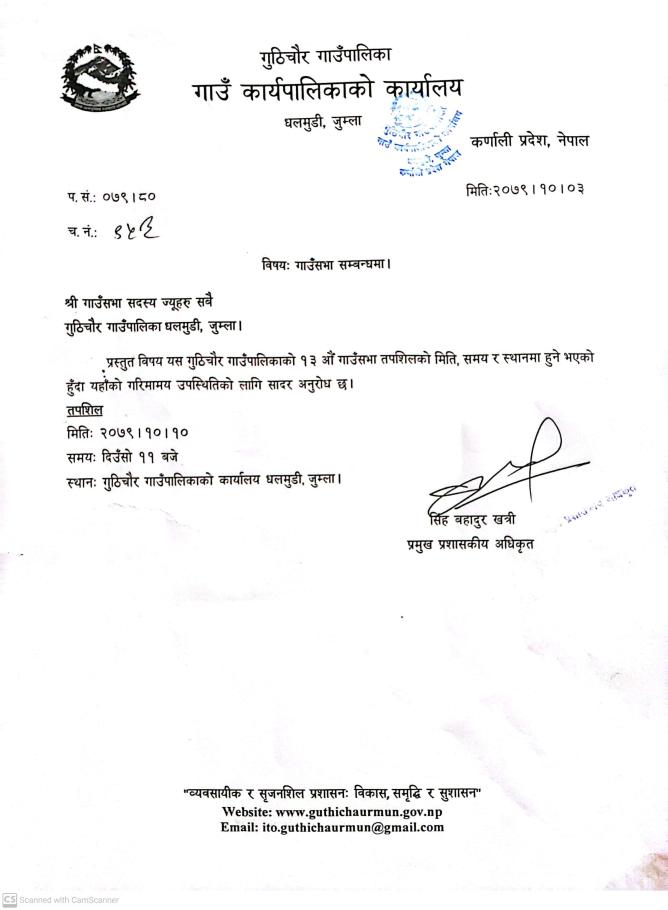 गुठिचौर गाउँपालिका
गाउँ कार्यपालिकाको कार्यालय
धलमुडी, जुम्ला
कर्णाली प्रदेश, नेपाल
प. सं.: ०७९।८०
मितिः२०७९।१०।०३
च. नं.:
विषयः गाउँसभा सम्बन्धमा।
श्री गाउँसभा सदस्य ज्यूहरु सबै
गुठिचौर गाउँपालिका धलमुडी, जुम्ला।
प्रस्तुत विषय यस गुठिचौर गाउँपालिकाको १३ औं गाउँसभा तपशिलको मिति, समय र स्थानमा हुने भएको
हुँदा यहाँको गरिमामय उपस्थितिको लागि सादर अनुरोध छ।
तपशिल
मितिः २०७९।१०।१०
समयः दिउँसो ११ बजे
स्थानः गुठिचौर गाउँपालिकाको कार्यालय धलमुडी, जुम्ला।
सिंह बहादुर खत्री
प्रमुख प्रशासकीय अधिकृत
"व्यवसायीक र सृजनशिल प्रशासनः विकास, समृद्धि र सुशासन"
Website: www.guthichaurmun.gov.np
Email: ito.guthichaurmun@gmail.com
CS Scanned with CamScanner